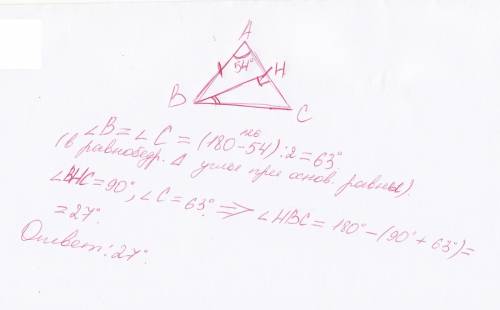 A
54°
H
B
C
126
∠B = ∠C = (180-54):2 = 63°
(в равнобедр. Δ углы при основ. равны).
∠BHC = 90°, ∠C = 63° ⇒ ∠HBC = 180° - (90° + 63°) =
= 27°.
Ответ: 27°.